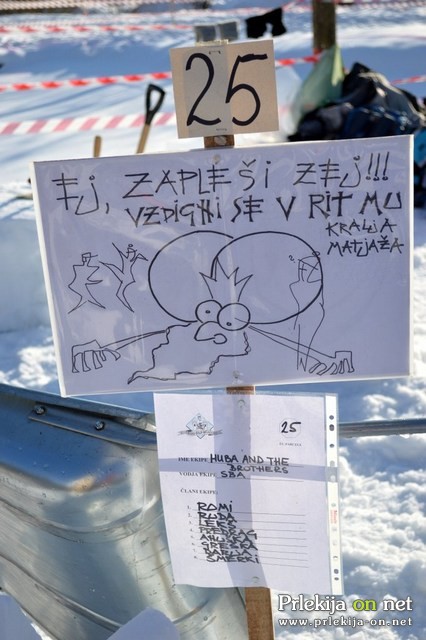 25
EJ, ZAPLEŠI ZEJ!!!
VZDIGNI SE V RITMU
KRALJA
MATJAŽA
25
IME EKIPE: HUBA AND THE
BROTHERS
VODJA EKIPE: SBA
ČLANI EKIPE:
1. ROMI
2. RUDA
SMERKI
Prlekija on net
www.prlekija-on.net